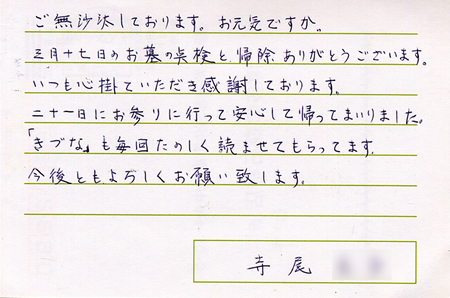 ご無沙汰しております。お元気ですか。
三月十七日のお墓の点検と帰除ありがとうございます。
いつも心掛ていただき感謝しております。
二十一日にお参りに行って安心して帰ってまいりました。
「きづな」も毎回たのしく読ませてもらってます
今後ともよろしくお願い致します。
寺尾